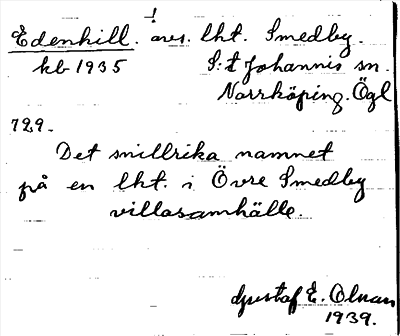 Edenhill. avs. lht. Smedby
kb 1935 S:t Johannis sn.
Norrköping. Ögl
729.
Det snillrika namnet
på en lht. i Övre Smedby
villasamhälle.
Gustaf E. Olnan
1939.